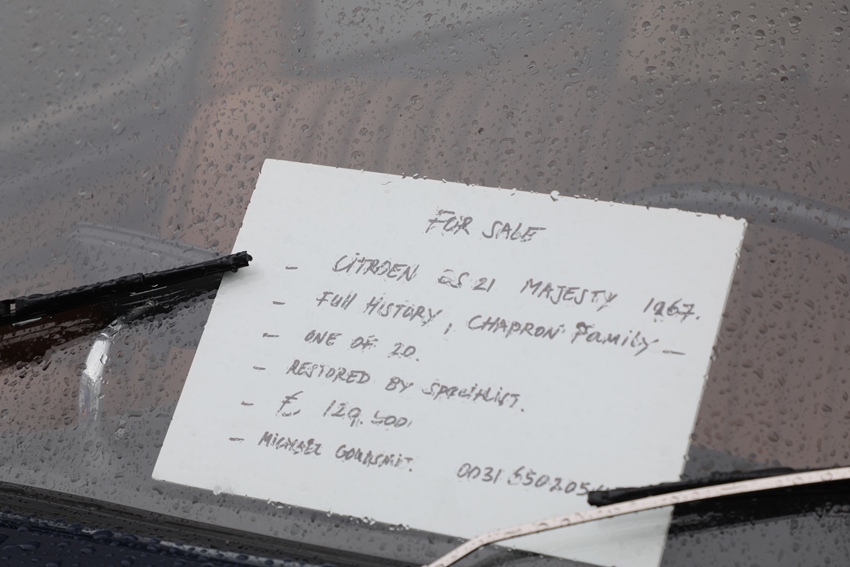 FOR SALE
- CITROEN DS 21 MAJESTY 1967.
- FULL HISTORY, CHAPRON Family -
- ONE OF 20.
- RESTORED BY SPECIALIST.
- £ 129.500,
- MICHAEL GOUDSMIT. 0031 6502054